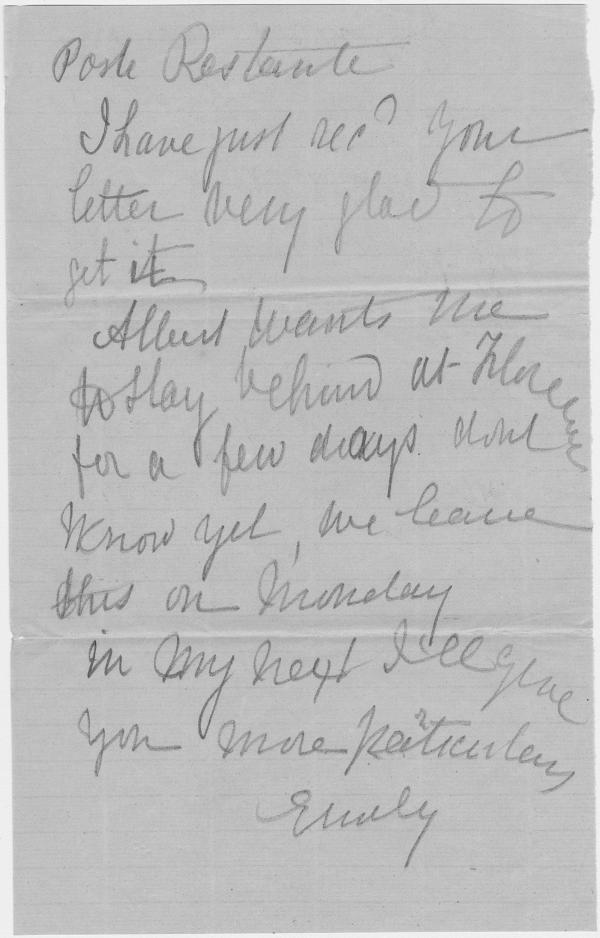 Poste Restante
I have just recd your
letter very glad to
get it
Albert wants me
to stay behind at Florence
for a few days dont
know yet, we leave
this on Monday
in my next I'll give
you more particulars
Emily